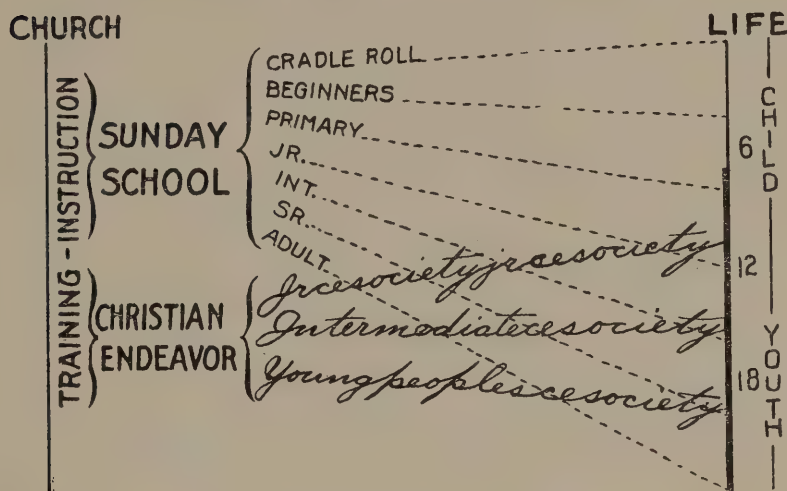 CHURCH
LIFE
TRAINING - INSTRUCTION
SUNDAY
SCHOOL
CRADLE ROLL
BEGINNERS
PRIMARY
JR.
INT.
SR.
ADULT
CHRISTIAN
ENDEAVOR
Jrcesocietyjrcesociety
Intermediatecesociety
Youngpeoplescesociety
6
12
18
CHILD
YOUTH